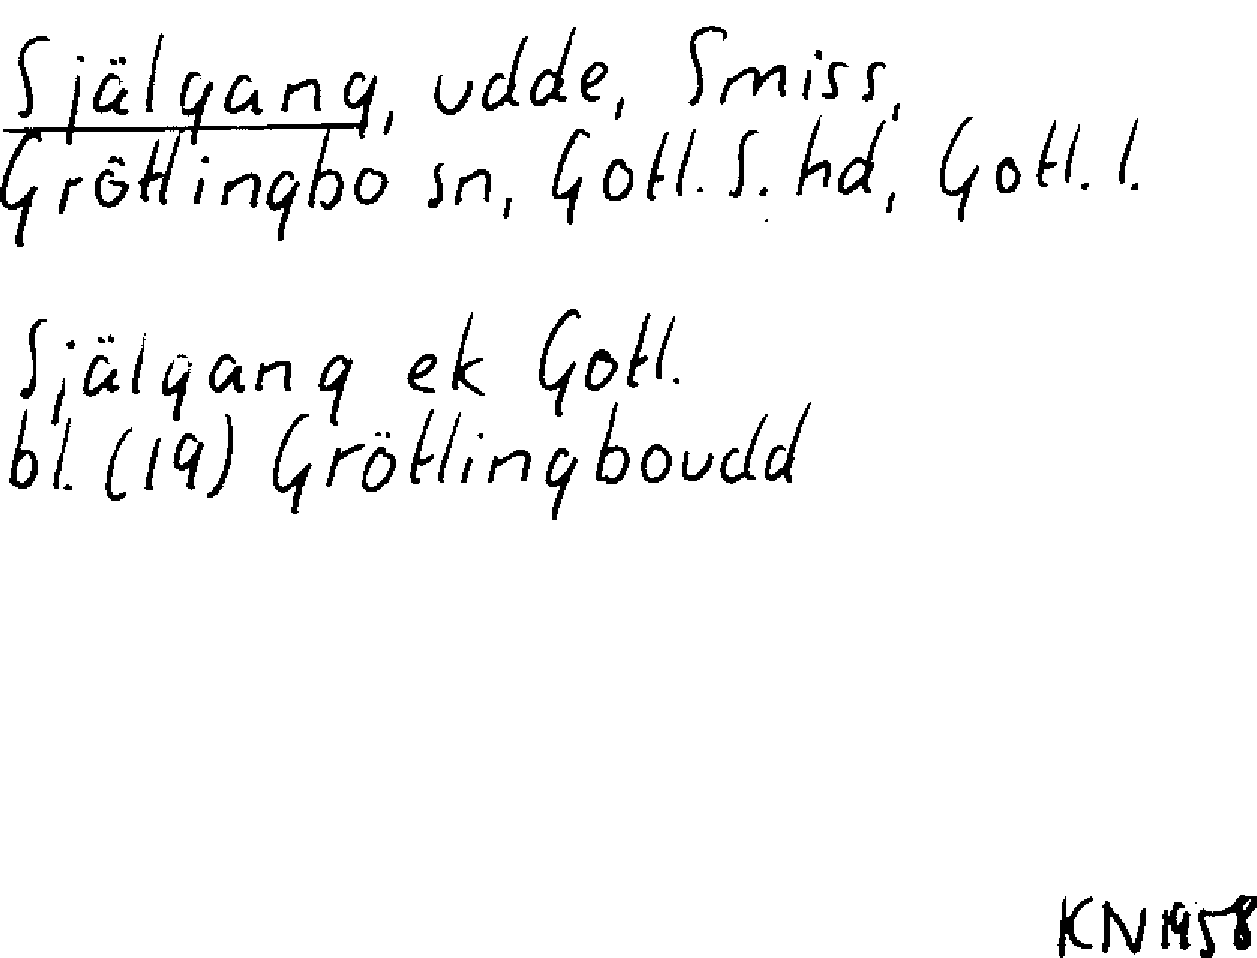 Själgang, udde, Smiss,
Grötlingbo sn, Gotl. S. hd, Gotl. l.
Själgang ek Gotl.
bl. (19) Grötlingboudd
KN 1958